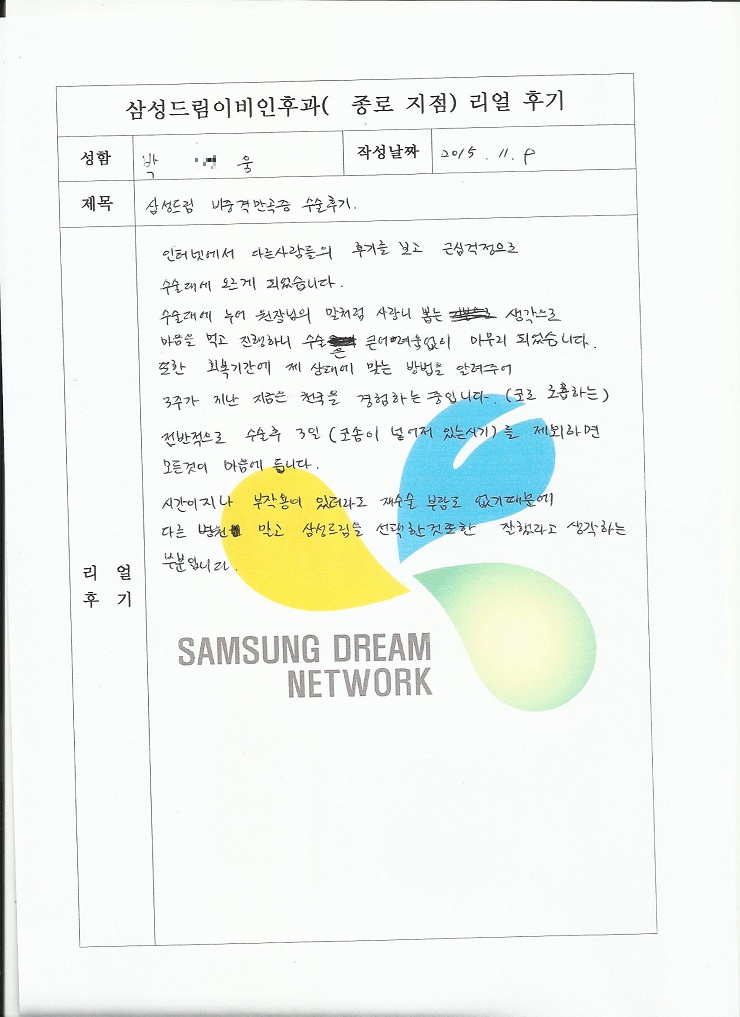 삼성드림이비인후과( 종로 지점) 리얼 후기
성함 박 욱 작성날짜 2015. 11. 9
제목 삼성드림 비중격만곡증 수술후기.
인터넷에서 다른사람들의 후기를 보고 근심걱정으로
수술대에 오르게 되었습니다.
수술대에 누어 원장님의 말처럼 사랑니 뽑는 생각으로
마음을 먹고 진행하니 수술은 큰어려움없이 마무리 되었습니다.
또한 회복기간에 제 상태에 맞는 방법을 알려주어
3주가 지난 지금은 천국을 경험하는 중입니다. (코로 호흡하는)
전반적으로 수술후 3일 (코솜이 넣어져 있는시기)를 제외하면
모든것이 마음에 듭니다.
시간이지나 부작용이 있더라도 재수술 부담도 없기때문에
다른 병원 말고 삼성드림을 선택한것또한 잘했다고 생각하는
부분입니다.
리 얼
후 기
SAMSUNG DREAM
NETWORK